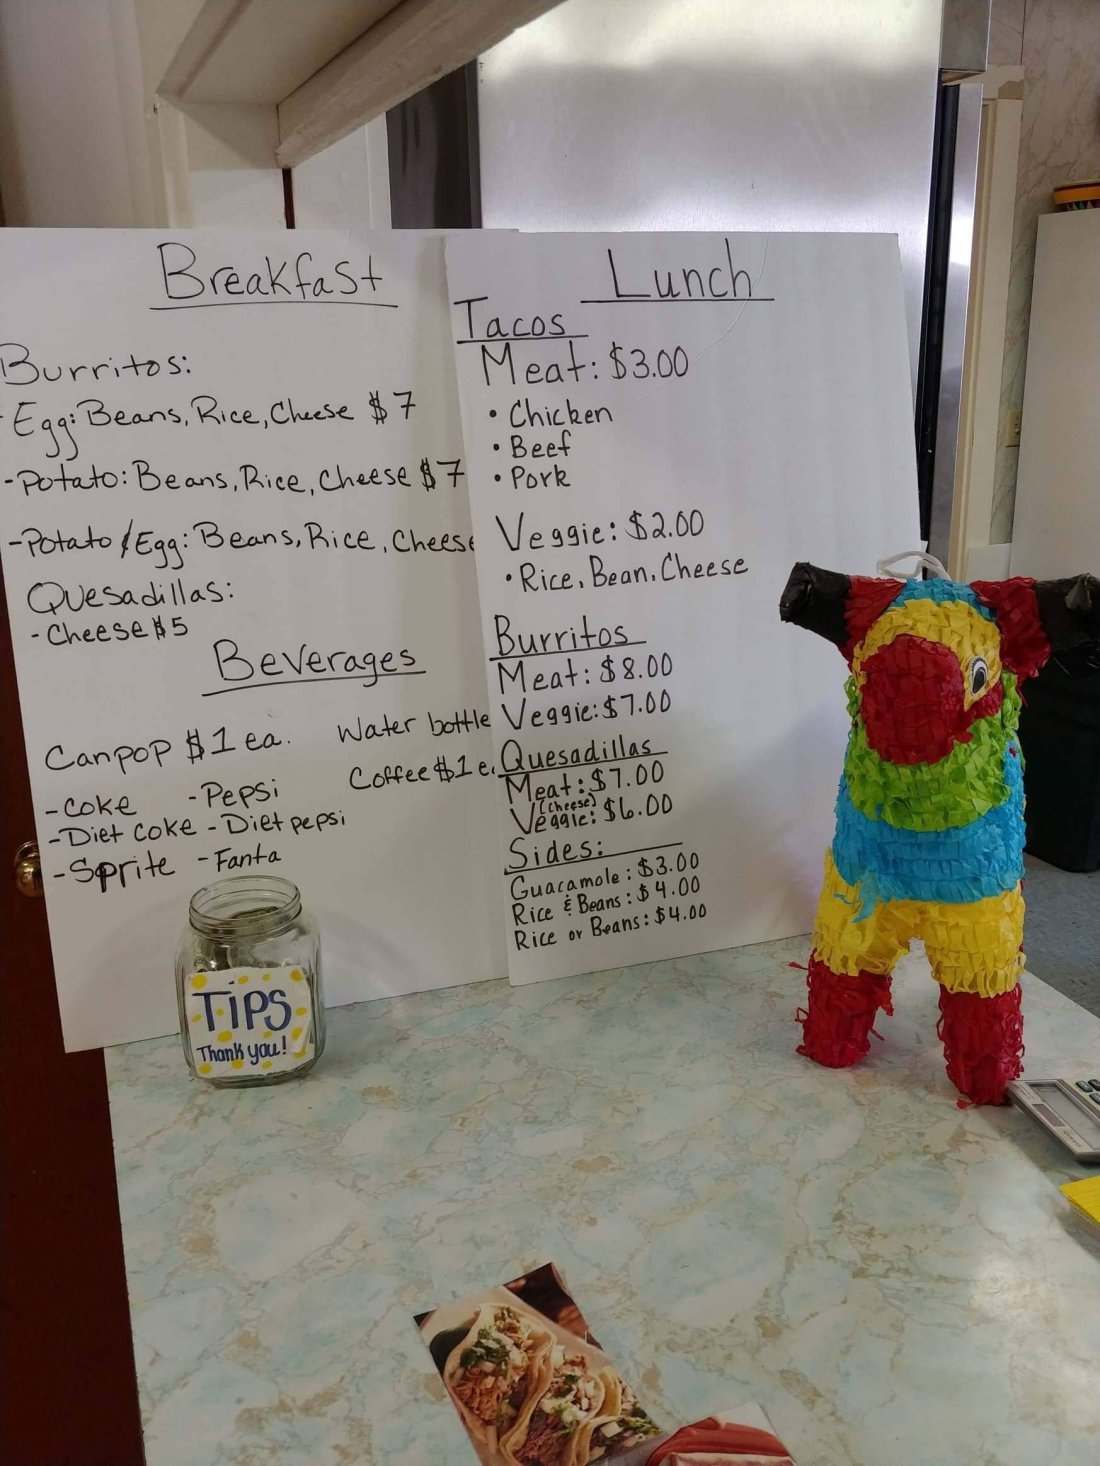 Breakfast
Burritos:
- Egg: Beans, Rice, Cheese $7
- Potato: Beans, Rice, Cheese $7
- Potato/Egg: Beans, Rice, Cheese
Quesadillas:
- Cheese $5
Beverages
Canpop $1 ea.
- Coke - Pepsi
- Diet coke - Diet pepsi
- Sprite - Fanta
Water bottle
Coffee $1 e
Lunch
Tacos
Meat: $3.00
• Chicken
• Beef
• Pork
Veggie: $2.00
• Rice, Bean, Cheese
Burritos
Meat: $8.00
Veggie: $7.00
Quesadillas
Meat: $7.00
(Cheese)
Veggie: $6.00
Sides:
Guacamole: $3.00
Rice & Beans: $4.00
Rice or Beans: $4.00
TIPS
Thank you!